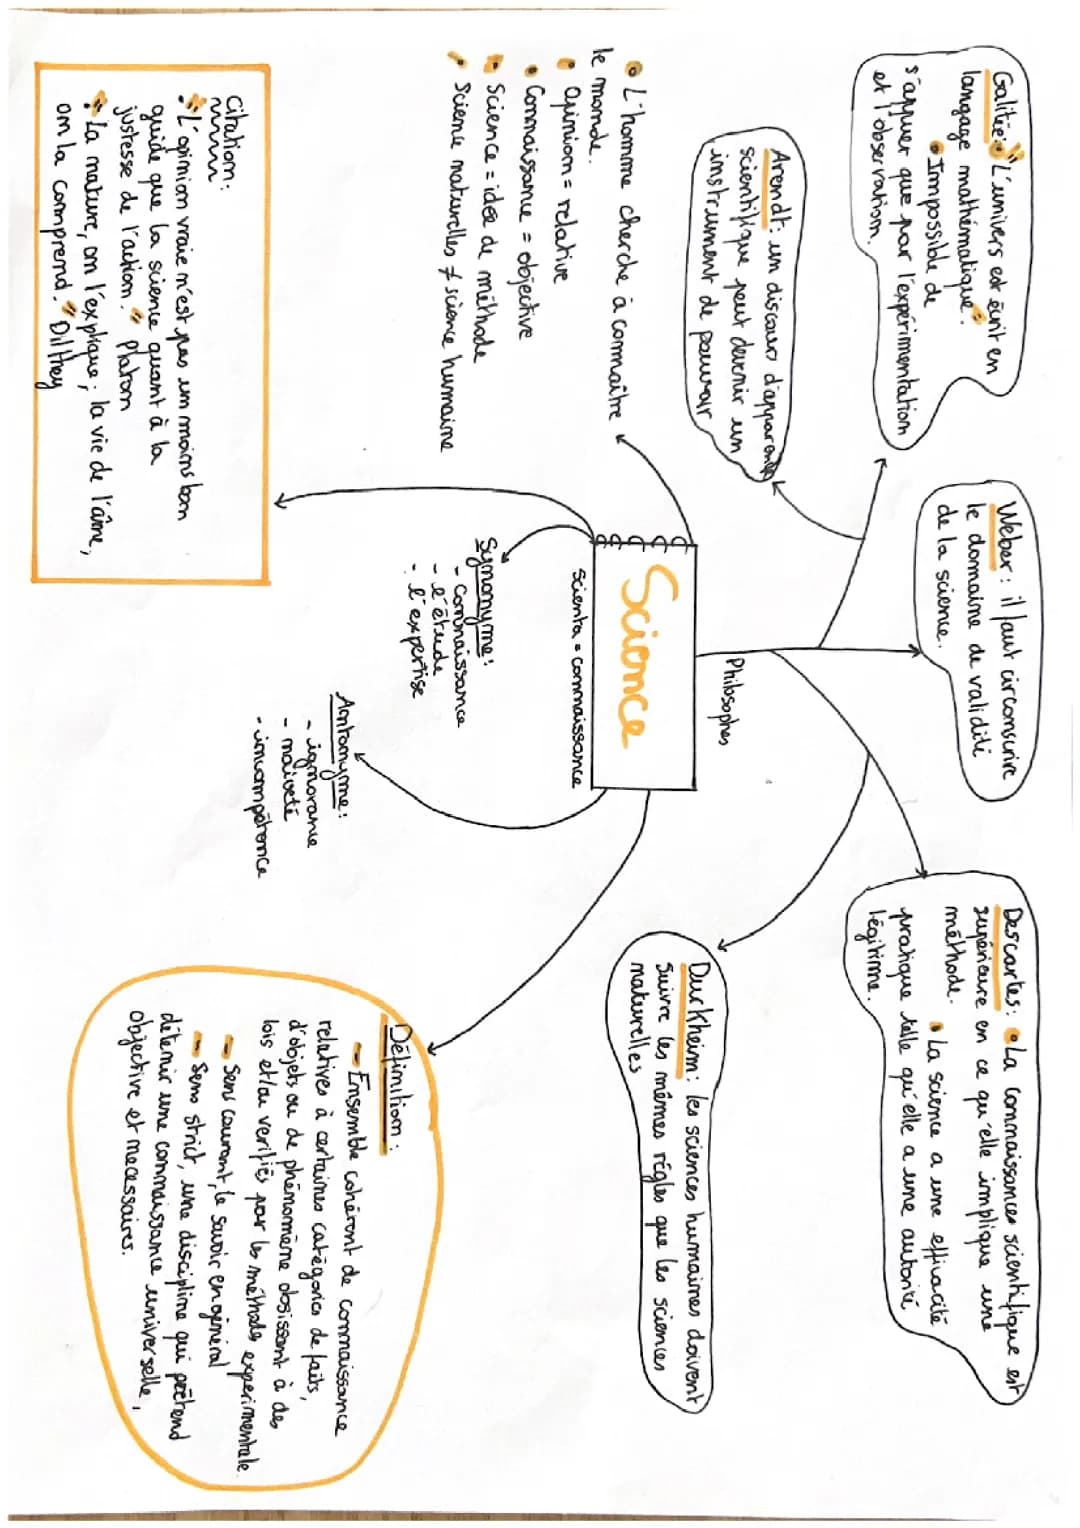 Galilée: "L'univers est écrit en
langage mathématique".
Impossible de
s'appuer que par l'expérimentation
et l'observation.
Weber: il faut circonscrire
le domaine de validité
de la science.
Descartes: La connaissances scientifique est
supérieure en ce qu'elle implique une
méthode.
La science a une efficacité
pratique telle qu'elle a une autorité
légitime.
Arendt: un discours d'apparence
scientifique peut devenir un
instrument de pouvoir
Philosophes
Durkheim: les sciences humaines doivent
suivre les mêmes règles que les sciences
naturelles
L'homme cherche à connaître
le monde.
opinion = relative
Connaissance = objective
Science = idée de méthode
Science naturelles ≠ science humaine
Science
scienta = connaissance
Synonyme:
- Connaissance
- l'étude
- l'expertise
Antonyme:
- ignorance
- naïveté
- incompétence
Définition:
Ensemble cohérent de connaissance
relatives à certaines catégories de faits,
d'objets ou de phénomène obsissant à des
lois et/ou verifiés par les méthodes experimentale.
Sens courant, le savoir en général
Sens strict, une discipline qui prétend
détenir une connaissance universelle,
objective et necessaires.
Citation:
"L'opinion vraie n'est pas un moins bon
guide que la science quant à la
justesse de l'action." Platon
"La nature, on l'explique; la vie de l'âme,
on la comprend." Dilthey